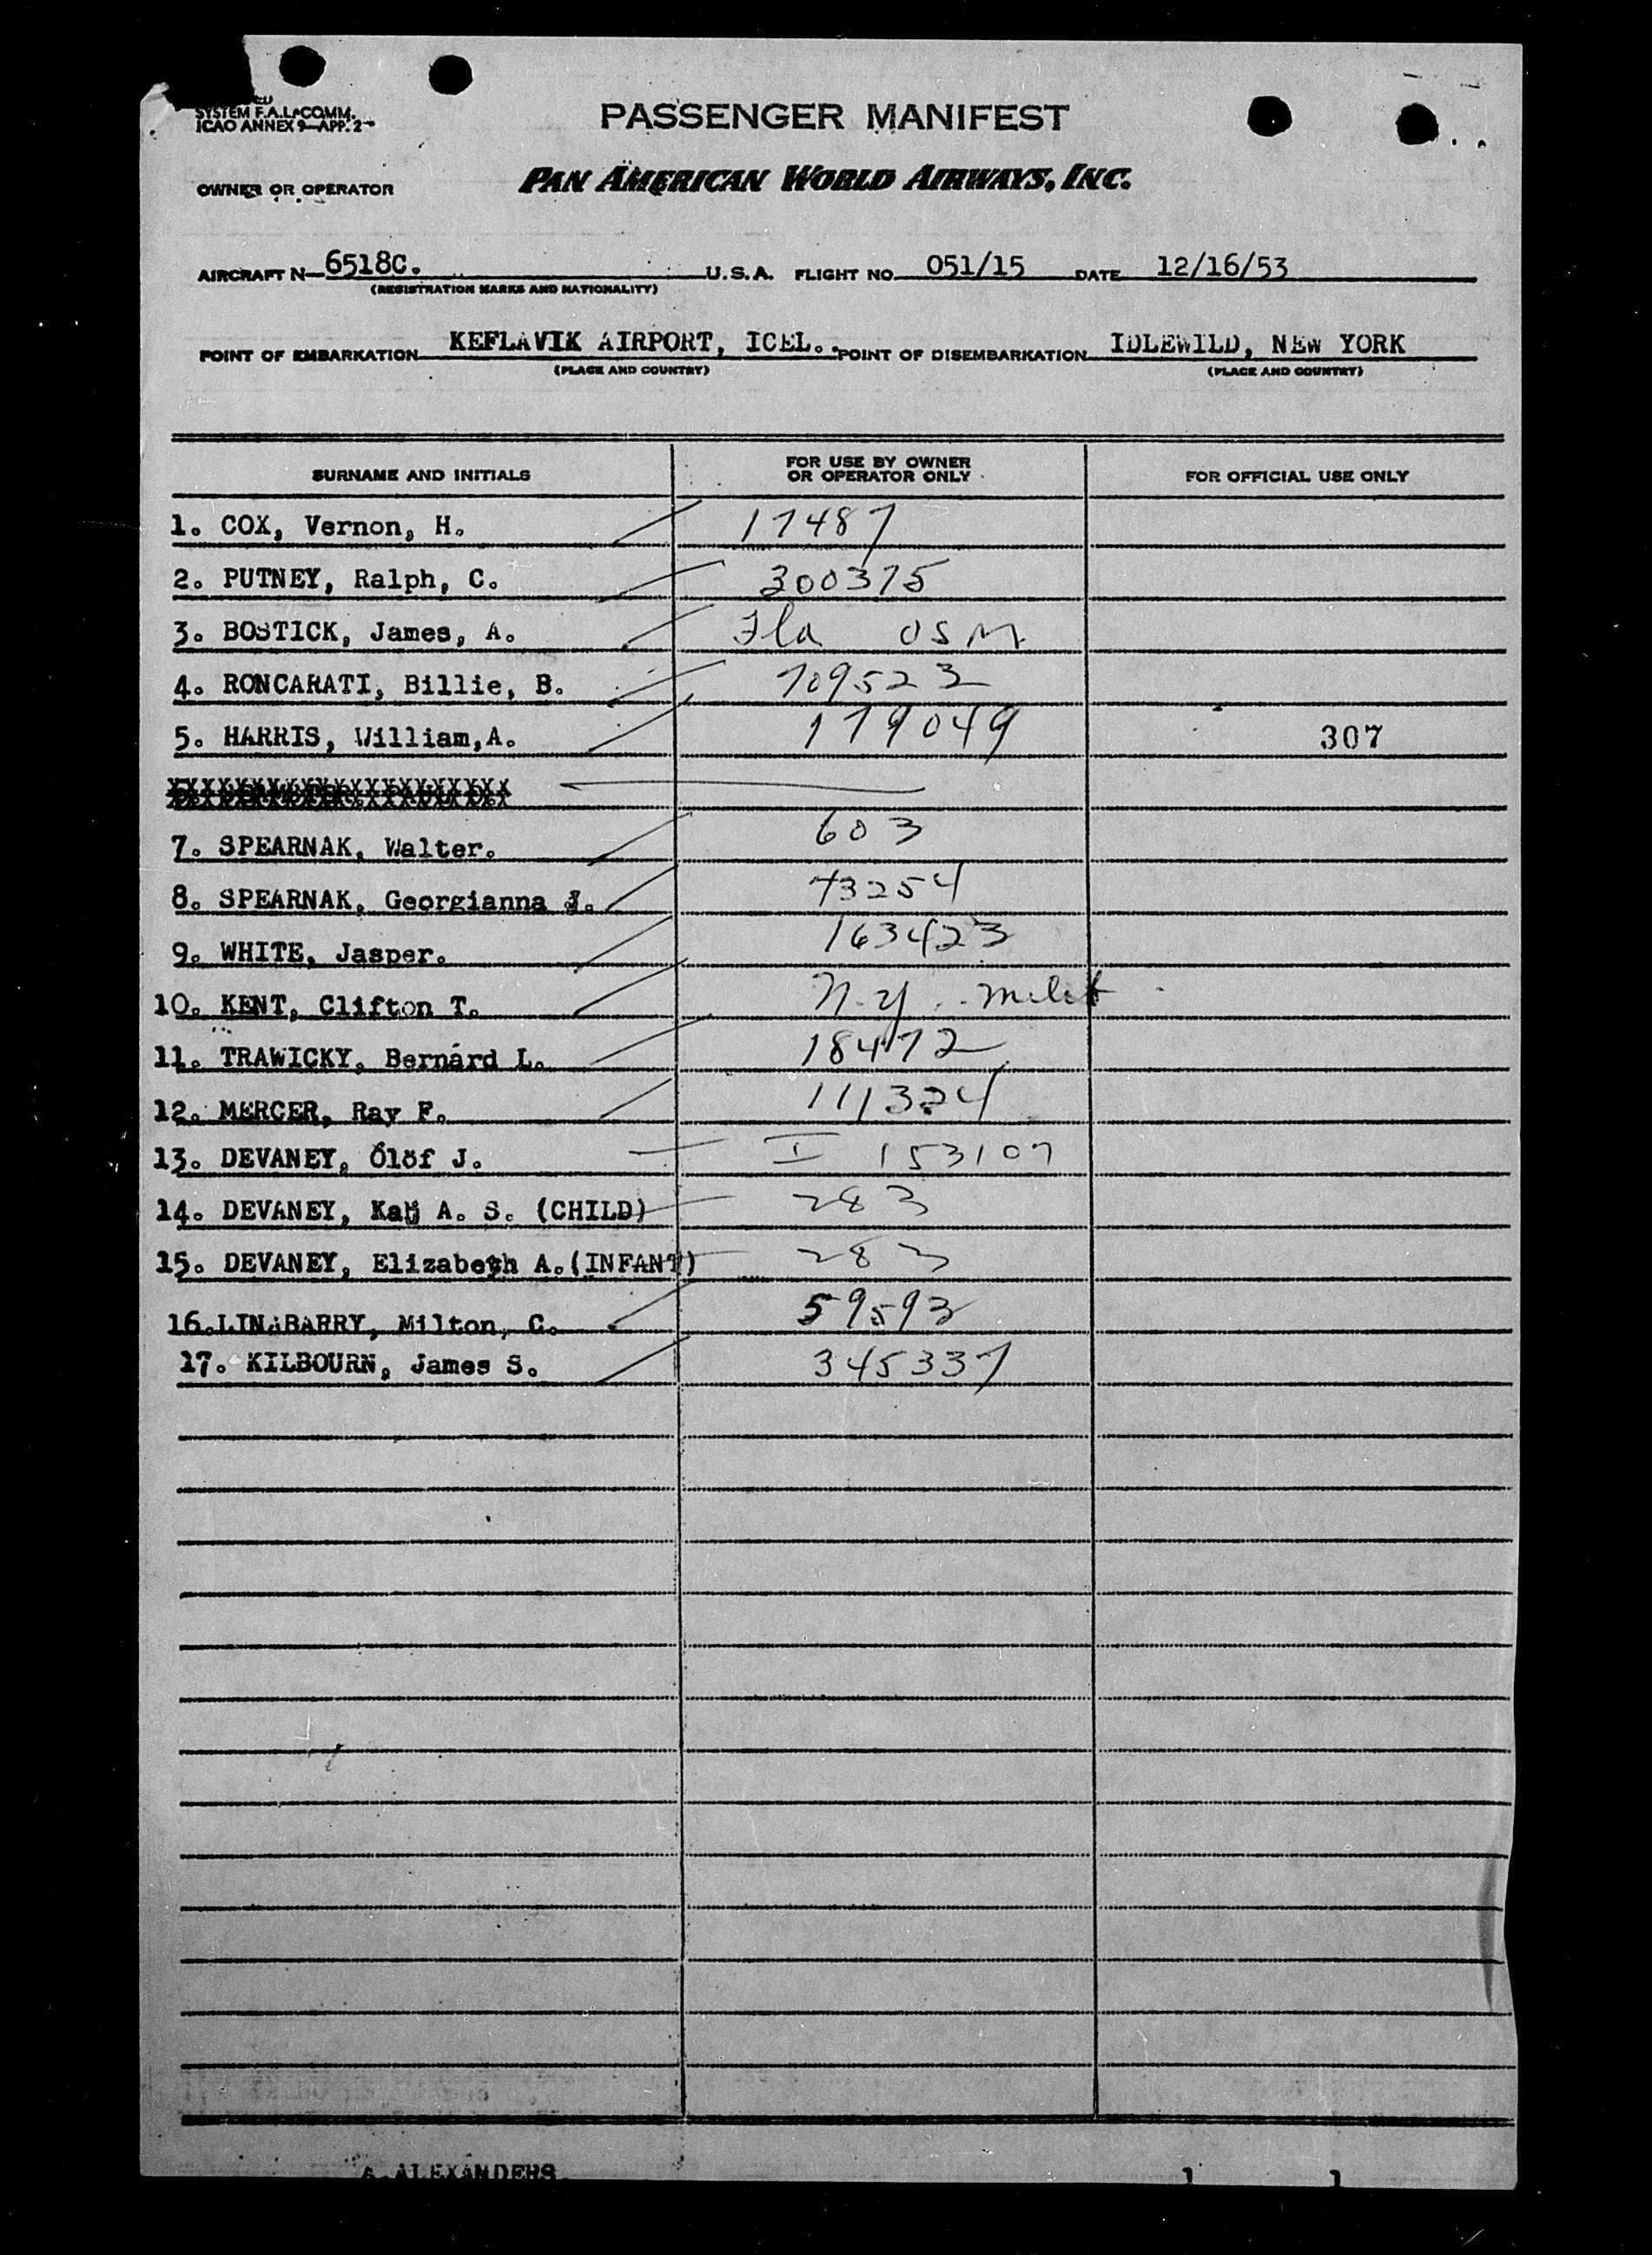 SYSTEM F.A.L. COMM.
ICAO ANNEX 9—APP. 2
PASSENGER MANIFEST
OWNER OR OPERATOR PAN AMERICAN WORLD AIRWAYS, INC.
AIRCRAFT N— 6518C. U.S.A. FLIGHT NO. 051/15 DATE 12/16/53
(REGISTRATION MARKS AND NATIONALITY)
POINT OF EMBARKATION KEFLAVIK AIRPORT, ICEL. POINT OF DISEMBARKATION IDLEWILD, NEW YORK
(PLACE AND COUNTRY) (PLACE AND COUNTRY)
SURNAME AND INITIALS FOR USE BY OWNER OR OPERATOR ONLY FOR OFFICIAL USE ONLY
1. COX, Vernon, H. 17487
2. PUTNEY, Ralph, C. 300375
3. BOSTICK, James, A. Fla OSM
4. RONCARATI, Billie, B. 709523
5. HARRIS, William,A. 179049 307
7. SPEARNAK, Walter. 603
8. SPEARNAK, Georgianna J. 73254
9. WHITE, Jasper. 163423
10. KENT, Clifton T. N.Y. Milit
11. TRAWICKY, Bernard L. 18472
12. MERCER, Ray F. 111324
13. DEVANEY, Ólöf J. I 153107
14. DEVANEY, A. S. (CHILD) 283
15. DEVANEY, Elizabeth A.(INFANT) 283
16.LINABARRY, Milton, C. 59593
17. KILBOURN, James S. 345337
A. ALEXANDERS.
1 1